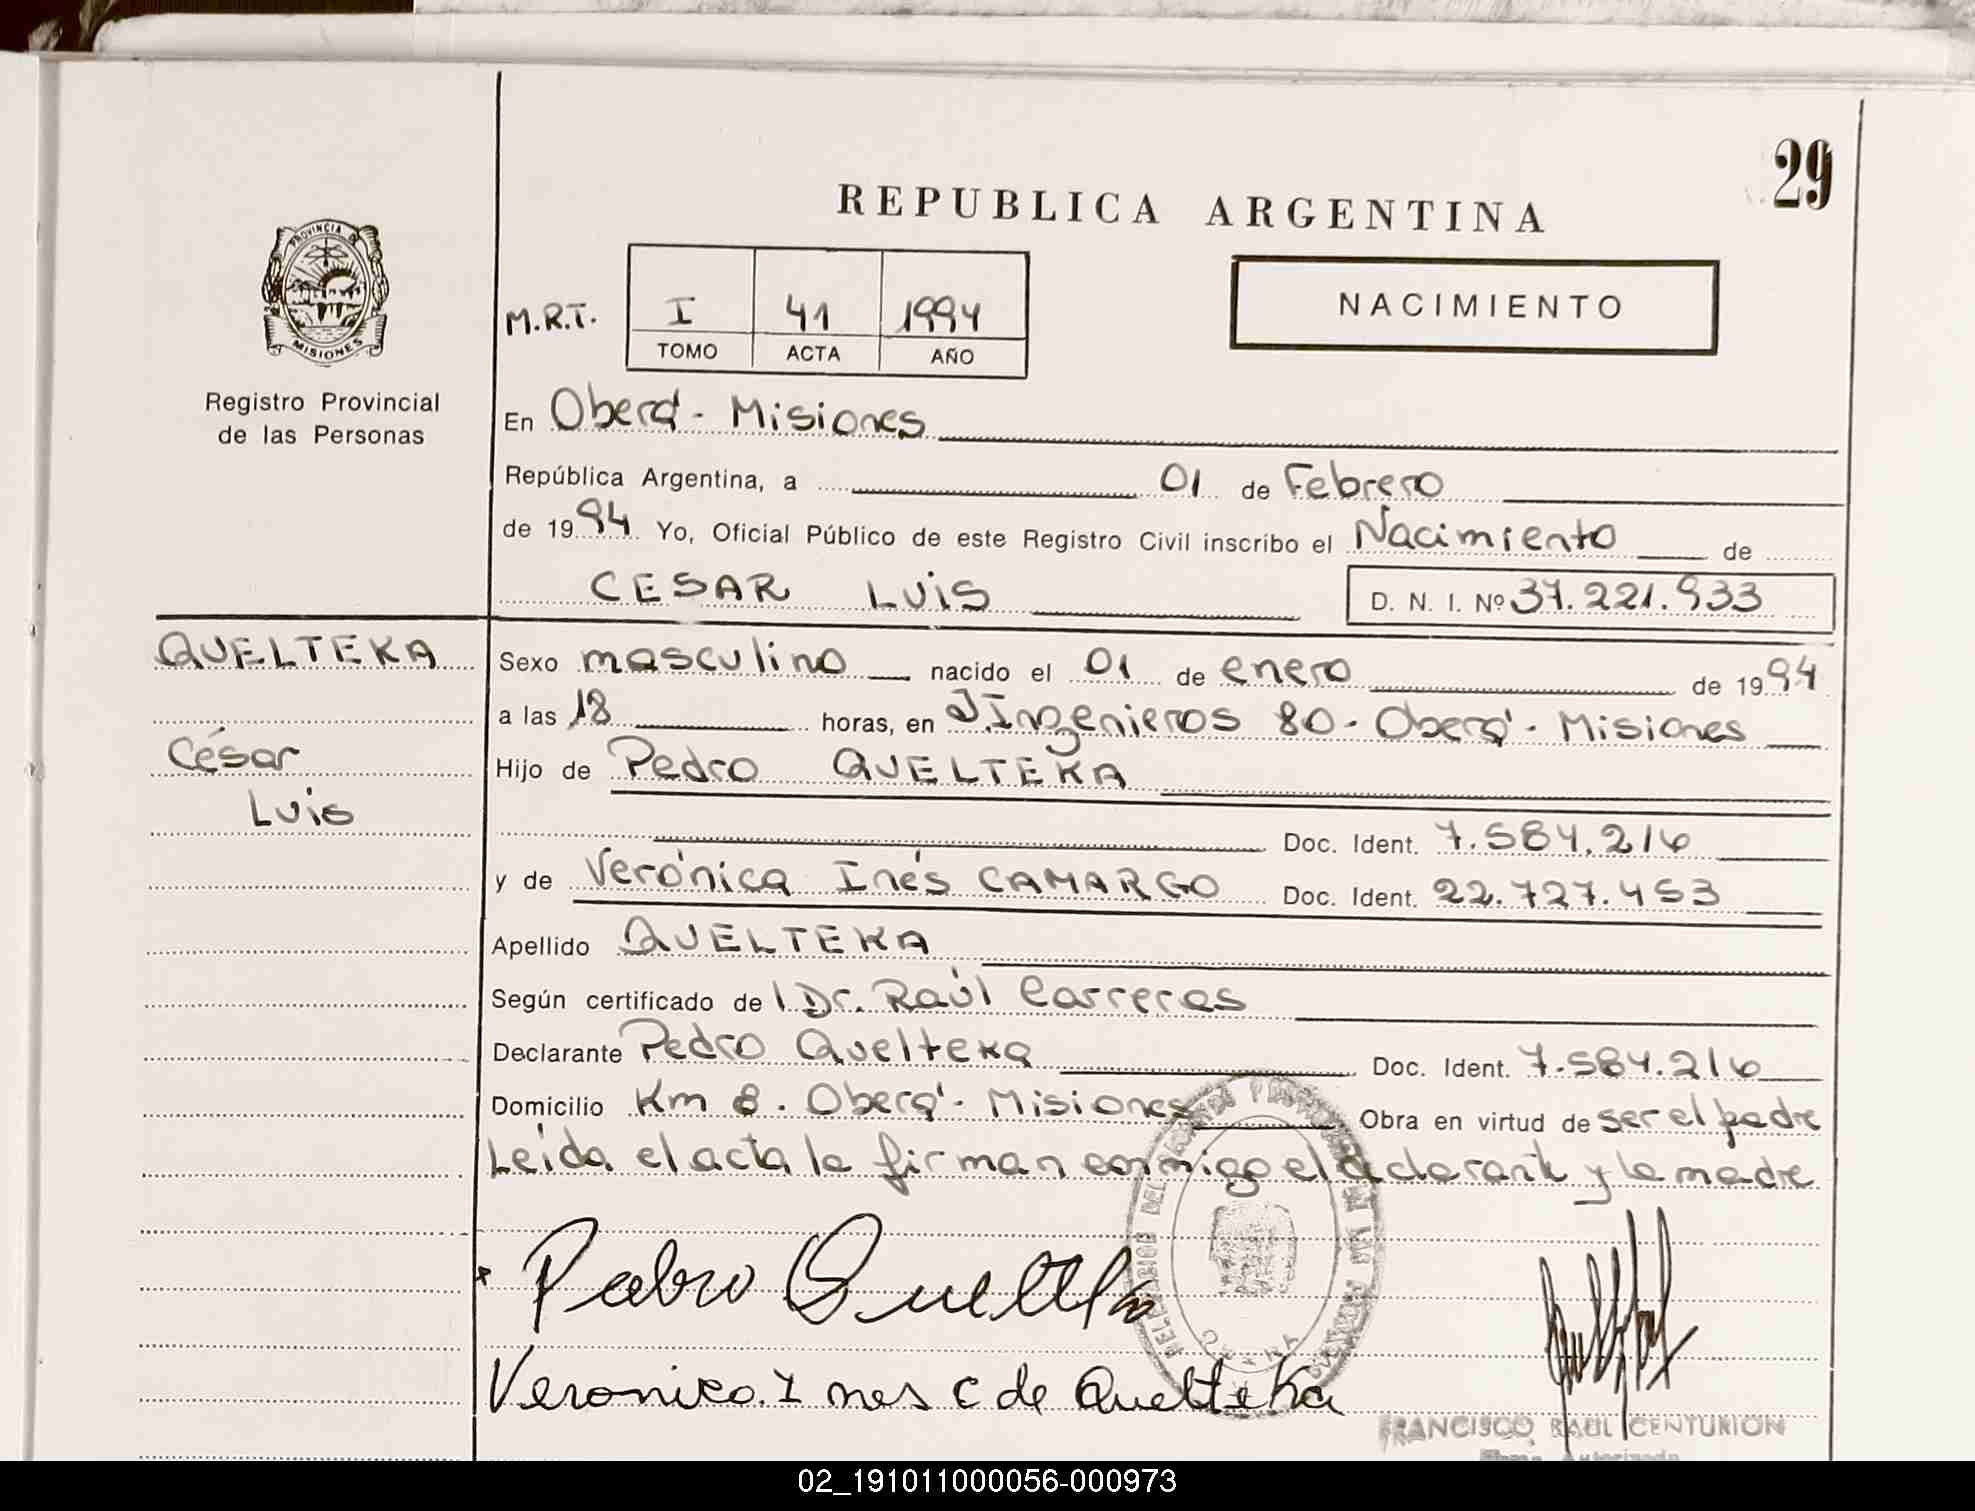 29
REPUBLICA ARGENTINA
PROVINCIA DE
MISIONES
Registro Provincial
de las Personas
M.R.T. I 41 1994
TOMO ACTA AÑO
NACIMIENTO
En Oberá - Misiones
República Argentina, a 01 de Febrero
de 1994 Yo, Oficial Público de este Registro Civil inscribo el Nacimiento de
CESAR LUIS D. N. I. Nº 37.221.933
QUELTEKA
César
Luis
Sexo masculino nacido el 01 de enero de 1994
a las 18 horas, en J Ingenieros 80 - Oberá - Misiones
Hijo de Pedro QUELTEKA
Doc. Ident. 7.584.216
y de Verónica Inés CAMARGO Doc. Ident. 22.727.453
Apellido QUELTEKA
Según certificado de l Dr. Raúl Carreras
Declarante Pedro Quelteka Doc. Ident. 7.584.216
Domicilio Km 8. Oberá - Misiones Obra en virtud de ser el padre
Leida el acta la firman conmigo el declarante y la madre
Pedro
Veronica Ines C de Quelteka
FRANCISCO RAUL CENTURION
02_191011000056-000973